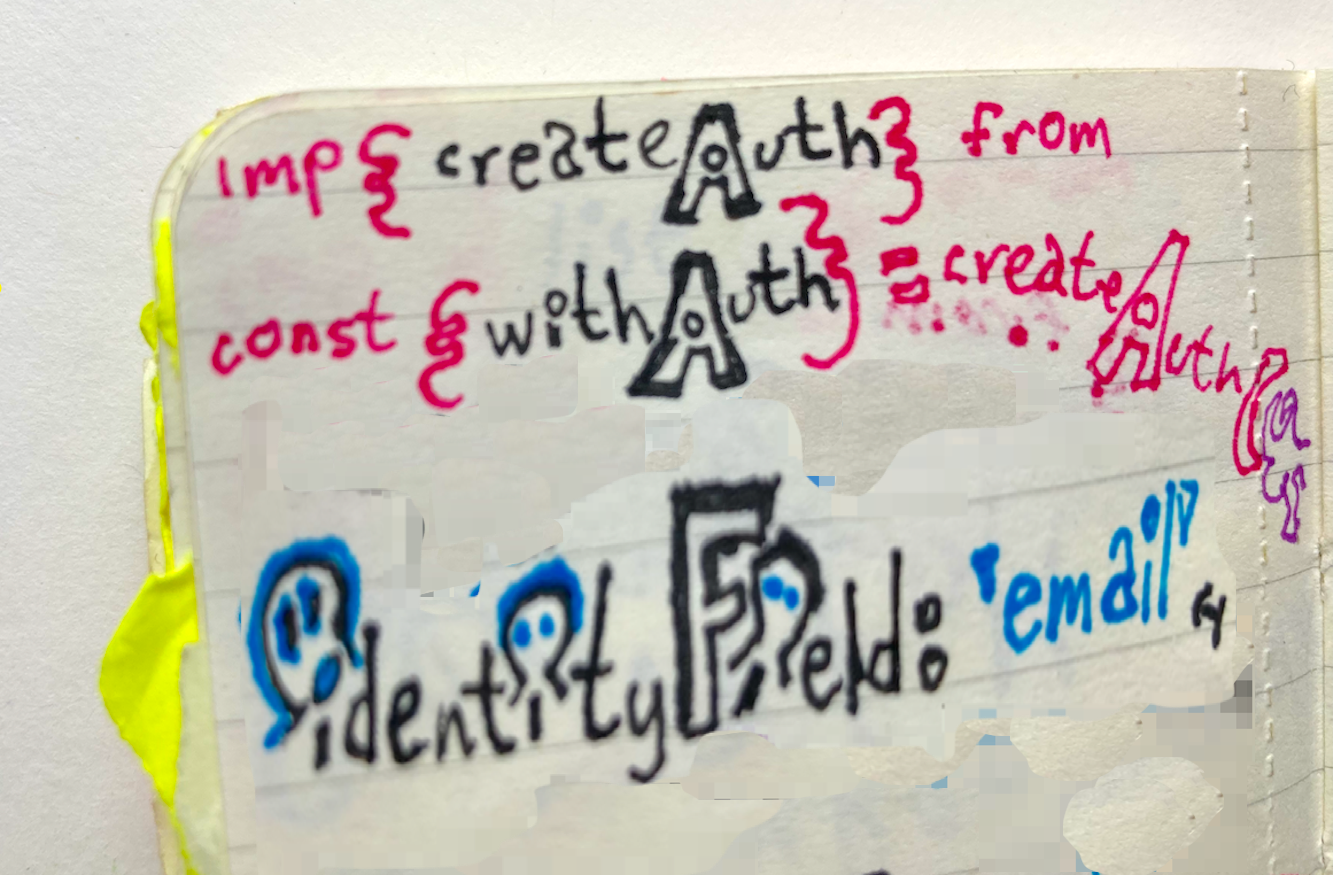 imp { createAuth } from
const { withAuth } = createAuth({
identityField: "email",